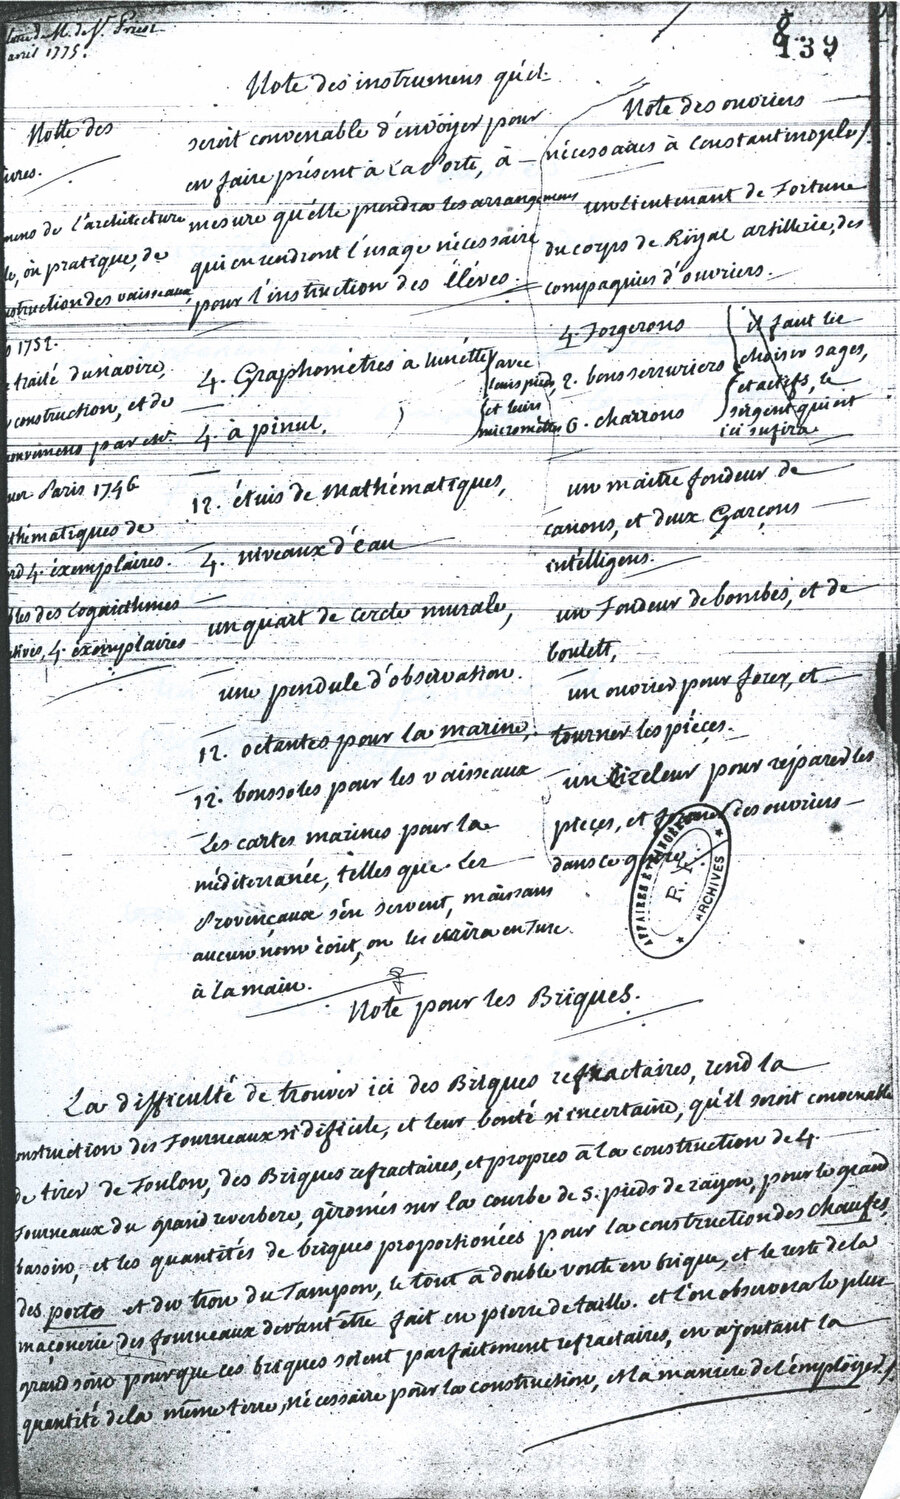 lettre de M. de St. Priest
avril 1775.
8
139
Notte des
ivres.
mens de l'architecture
le, ou pratique, de
nstruction des vaisseaux
1752.
traité du navire,
construction, et de
ouvemens par
Paris 1746
thématiques de
4. exemplaires.
bles des Logarithmes
4. exemplaires
Note des instrumens qu'il
seroit convenable d'envoyer pour
en faire présent à La Porte, à
mesure qu'elle prendra les arrangemens
qui en rendront l'usage nécessaire
pour l'instruction des Élèves.
4. Graphomètres à lunette
avec
leurs pieds,
et leurs
micromètres
4. à pinul,
12. étuis de mathématiques,
4. niveaux d'eau
un quart de cercle murale,
une pendule d'observation.
12. octantes pour la marine,
12. boussoles pour les vaisseaux
Les cartes marines pour la
méditerranée, telles que les
Provençaux s'en servent, mais sans
aucun nom écrit, on les écrira en Turc
à la main.
Note des ouvriers
nécessaires à Constantinople
un Lieutenant de Fortune
du corps de Royal artillerie, des
compagnies d'ouvriers.
4. Forgerons
2. bons serruriers
6. charrons
il faut les
choisir sages,
et actifs, le
sergent qui est
ici sufira
un maitre fondeur de
canons, et deux Garçons
intélligens.
un Fondeur de bombes, et de
boulets,
un ouvrier pour forer, et
tourner les pièces.
un Cizeleur pour réparer les
pieces, et former des ouvriers
dans ce genre
AFFAIRES ETRANGERES
R. F.
ARCHIVES
Note pour les Briques.
La difficulté de trouver ici des Briques refractaires, rend la
onstruction des Fourneaux si dificile, et leur bonté si incertaine, qu'il seroit convenable
de tirer de Toulon, des Briques refractaires, et propres à la construction de 4.
Fourneaux du grand reverbere, géromés sur la courbe de 5. pieds de raÿon, pour le grand
bassin, et les quantités de briques proportionées pour la construction des chaufes,
des portes et du trou du Tampon, le tout à double voute en brique, et le reste de la
maçonerie des fourneaux devant être fait en pierre de taille. et l'on observera le plus
grand soin pour que ces briques soient parfaitement refractaires, en ajoutant la
quantité de la même terre, nécessaire pour la construction, et la maniere de l'emploÿer.